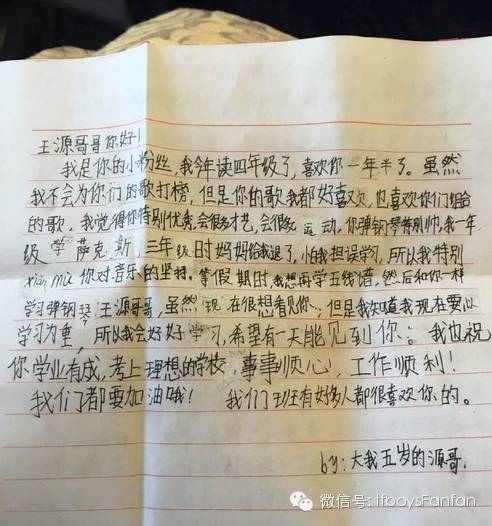 王源哥哥你好!
我是你的小粉丝,我今年读四年级了,喜欢你一年半了。虽然
我不会为你们的歌打榜,但是你的歌我都好喜欢,也喜欢你们组合
的歌。我觉得你特别优秀,会很多才艺,会很多运动,你弹钢琴特别帅,我一年
级学萨克斯,三年级时妈妈给我退了,怕我担误学习,所以我特别
xiàn mù你对音乐的坚持。等假期时,我想再学五线谱,然后和你一样
学习弹钢琴,王源哥哥,虽然现在很想看见你,但是我知道我现在要以
学习为重,所以我会好好学习,希望有一天能见到你。我也祝
你学业有成,考上理想的学校,事事顺心,工作顺利!
我们都要加油哦! 我们班有好多人都很喜欢你的。
by:大我五岁的源哥.
微信号:tfboysFanfan